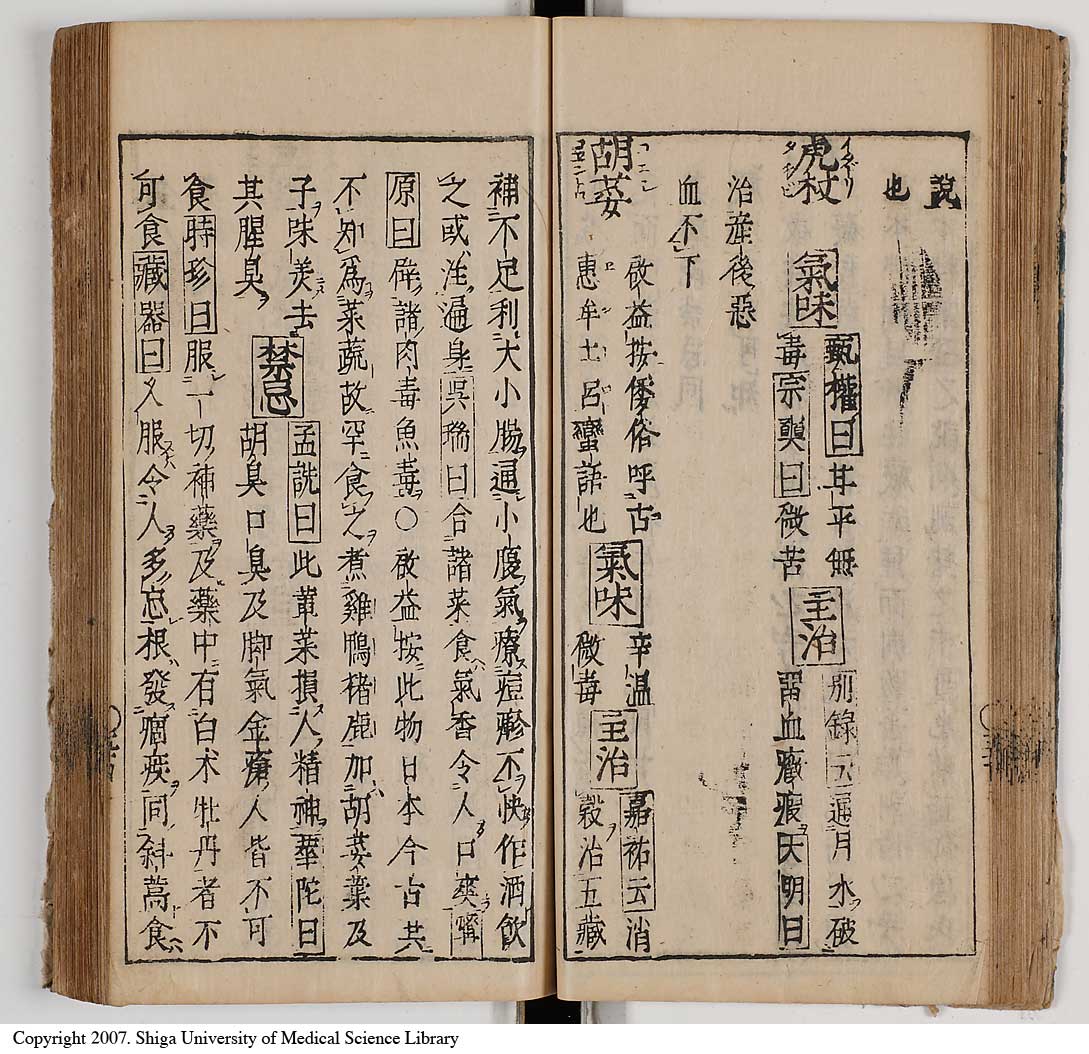 說
也
虎杖
イタドリ
氣味
甄權曰甘平無
毒宗奭曰微苦
主治
別錄云通月水破
留血癥瘕大明曰
治産後惡
血不下
胡荽
氣味
啟益按倭俗呼古
惠牟土呂蠻語也
辛温
微毒
主治
嘉祐云消
穀治五藏
補不足利大小腸通小腹氣療痘疹不快作酒飲
之或注遍身吳瑞曰合諸菜食氣香令人口爽寗
原曰辟諸肉毒魚毒〇啟益按此物日本今古共
不知爲菜蔬故罕食之煮雞鴨猪鹿加胡荽葉及
子味美去
其腥臭
禁忌
孟詵曰此葷菜損人精神華陀曰
胡臭口臭及脚氣金瘡人皆不可
食時珍曰服一切補藥及藥中有白朮牡丹者不
可食藏器曰久服令人多忘根發痼疾同斜蒿食
Copyright 2007. Shiga University of Medical Science Library